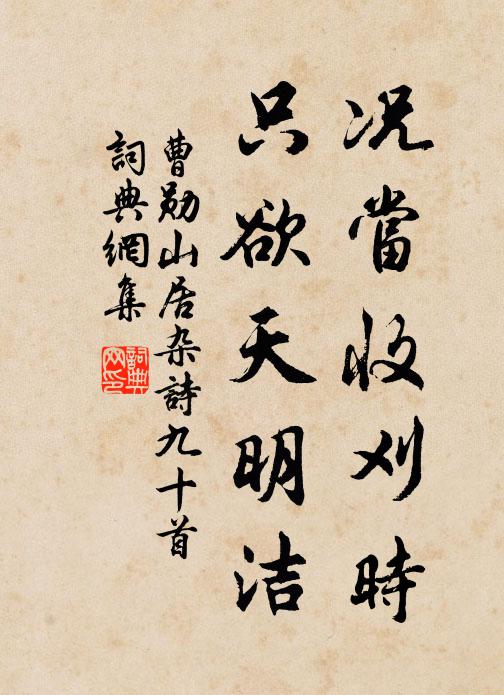 况當收刈時
只欲天明洁
曹勋山居杂詩九十首
詞典網集
詞典網印